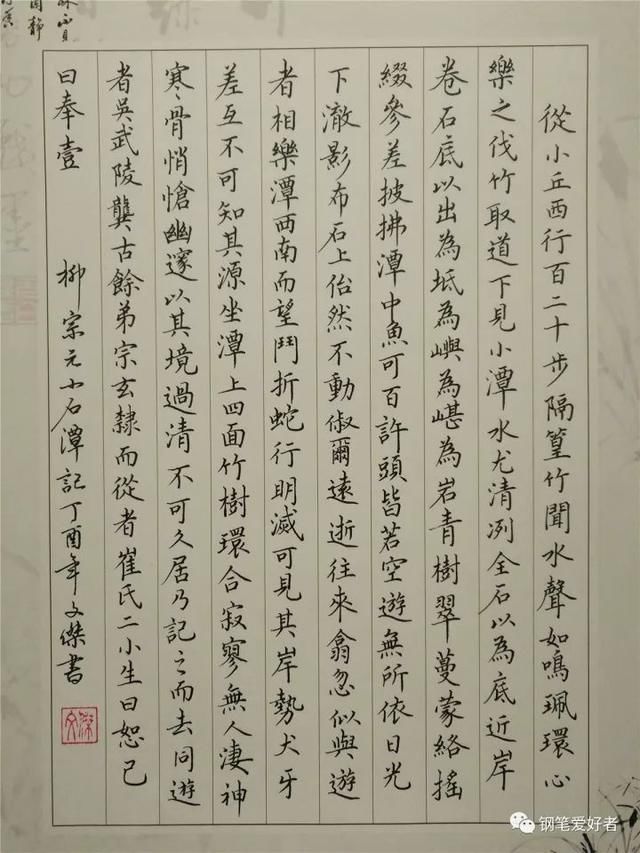 從小丘西行百二十步隔篁竹聞水聲如鳴珮環心
樂之伐竹取道下見小潭水尤清冽全石以為底近岸
卷石底以出為坻為嶼為嵁為岩青樹翠蔓蒙絡搖
綴參差披拂潭中魚可百許頭皆若空遊無所依日光
下澈影布石上佁然不動俶爾遠逝往來翕忽似與遊
者相樂潭西南而望鬥折蛇行明滅可見其岸勢犬牙
差互不可知其源坐潭上四面竹樹環合寂寥無人淒神
寒骨悄愴幽邃以其境過清不可久居乃記之而去同遊
者吳武陵龔古餘弟宗玄隸而從者崔氏二小生曰恕己
曰奉壹
柳宗元小石潭記丁酉年文傑書
钢笔爱好者